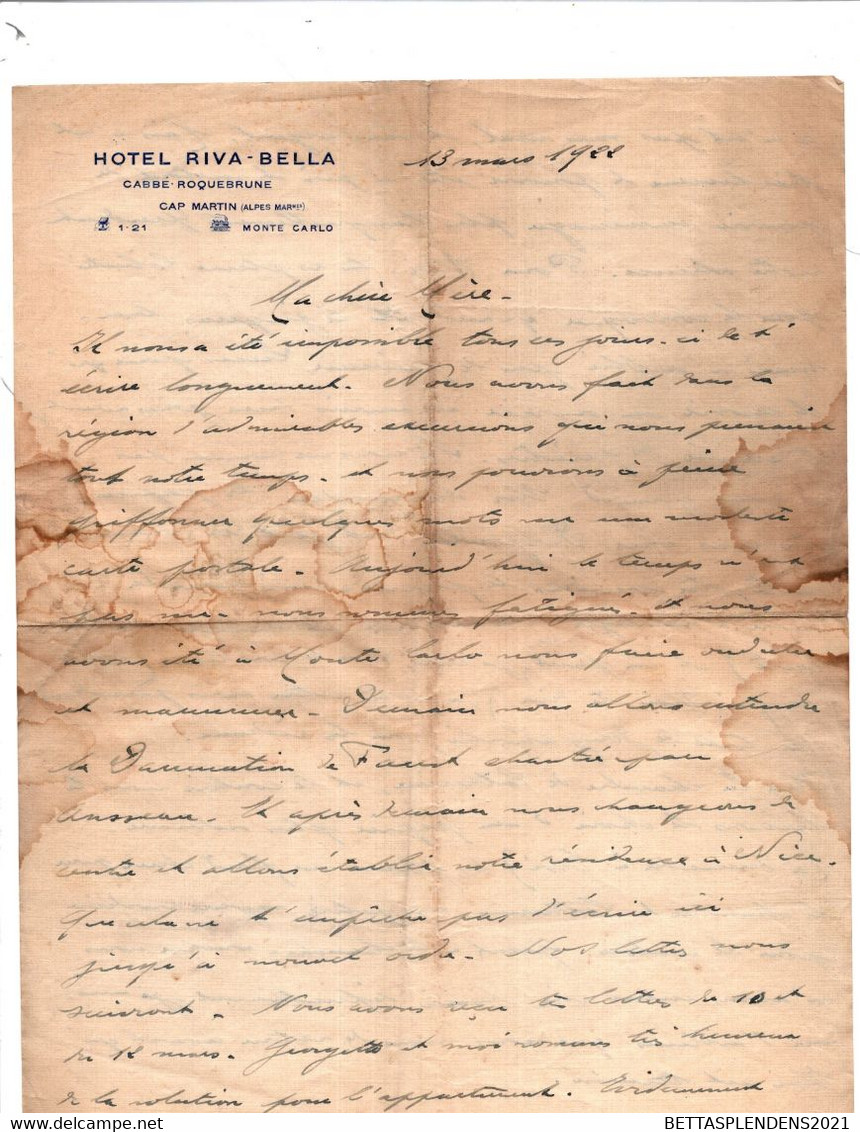 HOTEL RIVA-BELLA
CABBÉ-ROQUEBRUNE
CAP MARTIN (ALPES MARMES)
1-21 MONTE CARLO
13 mars 1922
Ma chère Mère -
Il nous a été impossible tous ces jours-ci de t'
écrire longuement. Nous avons fait dans la
région d'admirables excursions qui nous prenaient
tout notre temps - et nous pouvions à peine
griffonner quelques mots sur une modeste
carte postale - Aujourd'hui le temps n'est
pas - nous sommes fatigués. et nous
avons été à Monte Carlo nous faire onduler
et manucurer - Demain nous allons entendre
la Damnation de Faust chantée par
Ansseau. Et après demain nous changeons de
centre et allons établir notre résidence à Nice.
Que cela ne t'empêche pas d'écrire ici
jusqu'à nouvel ordre - Nos lettres nous
suivront - Nous avons reçu tes lettres de 10 et
de 12 mars. Georgette et moi sommes très heureux
de la solution pour l'appartement. Evidemment
BETTASPLENDENS2021